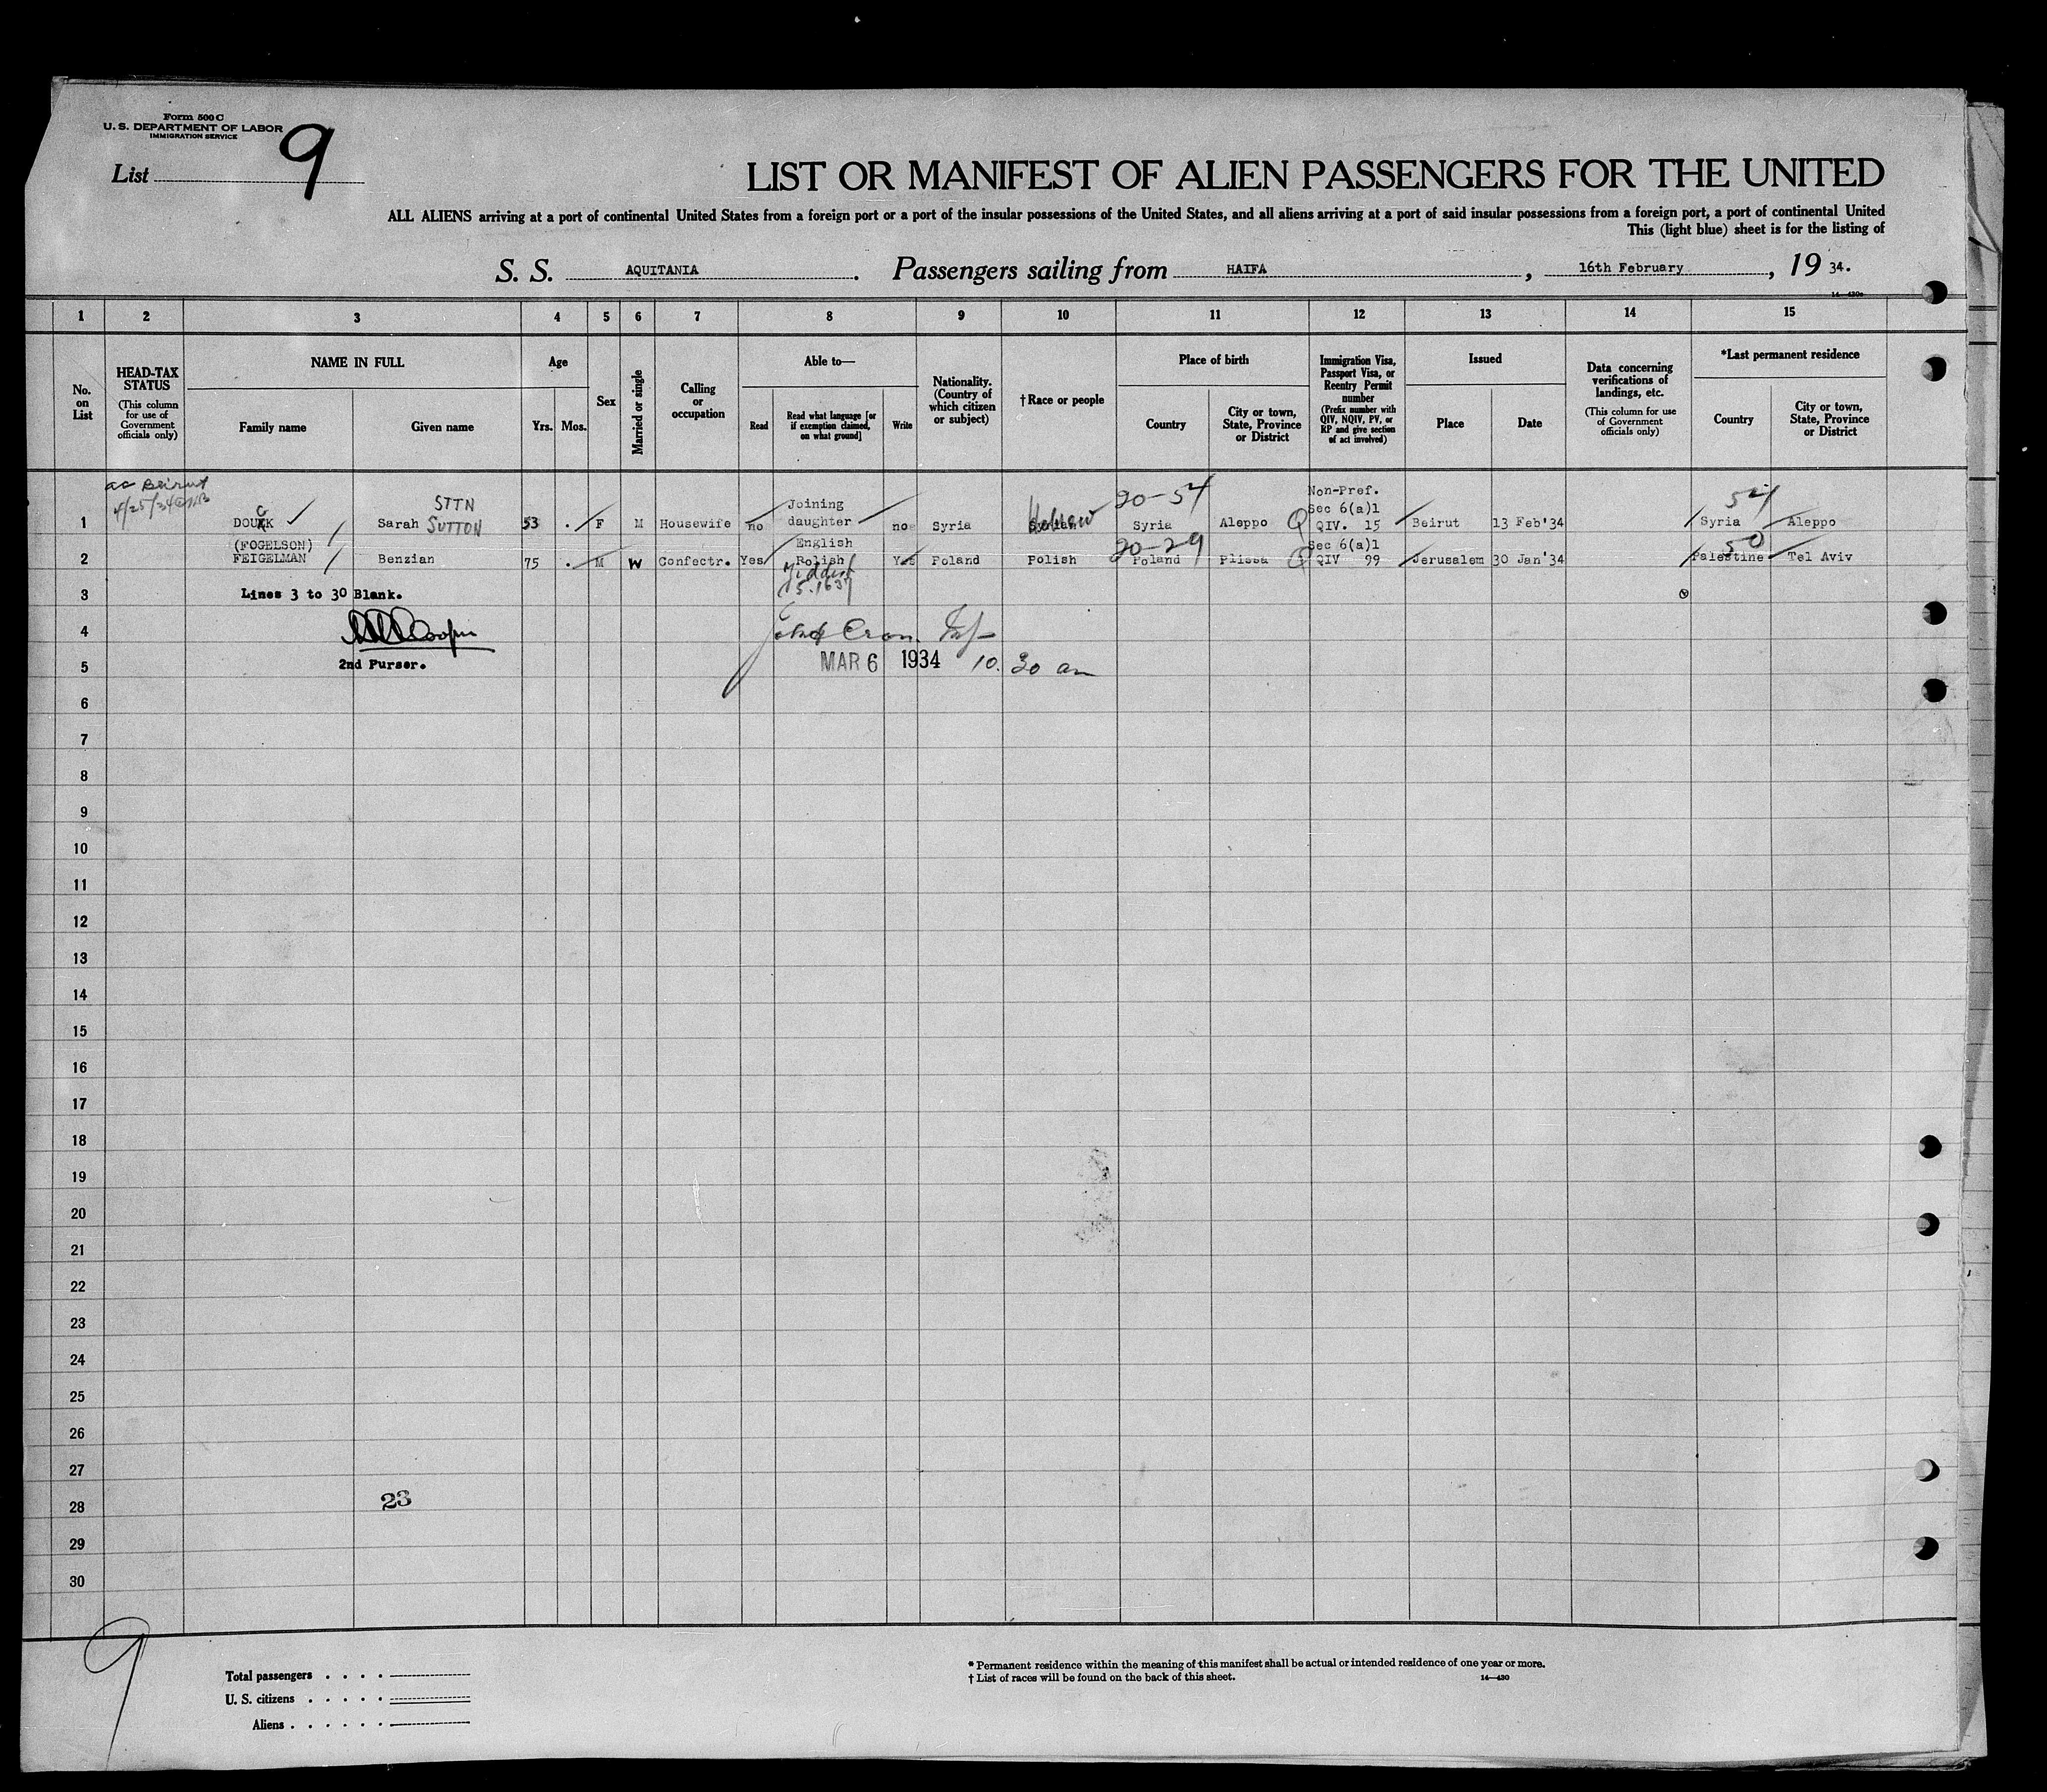 Form 500 C
U. S. DEPARTMENT OF LABOR
IMMIGRATION SERVICE
List 9
LIST OR MANIFEST OF ALIEN PASSENGERS FOR THE UNITED
ALL ALIENS arriving at a port of continental United States from a foreign port or a port of the insular possessions of the United States, and all aliens arriving at a port of said insular possessions from a foreign port, a port of continental United
This (light blue) sheet is for the listing of
S. S. AQUITANIA. Passengers sailing from HAIFA, 16th February, 19 34.
14-430c
1 2 3 4 5 6 7 8 9 10 11 12 13 14 15
No. on List
HEAD-TAX STATUS (This column for use of Government officials only)
NAME IN FULL
Family name
Given name
Age
Yrs. Mos.
Sex
Married or single
Calling or occupation
Able to—
Read
Read what language [or if exemption claimed, on what ground]
Write
Nationality. (Country of which citizen or subject)
†Race or people
Place of birth
Country
City or town, State, Province or District
Immigration Visa, Passport Visa, or Reentry Permit number (Prefix number with QIV, NQIV, PV, or RP and give section of act involved)
Issued
Place
Date
Data concerning verifications of landings, etc. (This column for use of Government officials only)
*Last permanent residence
Country
City or town, State, Province or District
Beirut
4/25/34
STTN Joining 20-54 Non-Pref. Sec 6(a)1 54
1 DOUEK Sarah SUTTON 53 F M Housewife no daughter no Syria Hebrew Syria Aleppo Q QIV. 15 Beirut 13 Feb'34 Syria Aleppo
(FOGELSON) English 20-29 Sec 6(a)1 50
2 FEIGELMAN Benzian 75 M W Confectr. Yes Polish Yes Poland Polish Poland Plissa Q QIV 99 Jerusalem 30 Jan'34 Palestine Tel Aviv
Yiddish
3 Lines 3 to 30 Blank. 15.1637
4 Cooper
5 2nd Purser. MAR 6 1934 10.30 am
6
7
8
9
10
11
12
13
14
15
16
17
18
19
20
21
22
23
24
25
26
27
28 23
29
30
9
Total passengers . . . .
U. S. citizens . . . . .
Aliens . . . . . .
* Permanent residence within the meaning of this manifest shall be actual or intended residence of one year or more.
† List of races will be found on the back of this sheet. 14-430